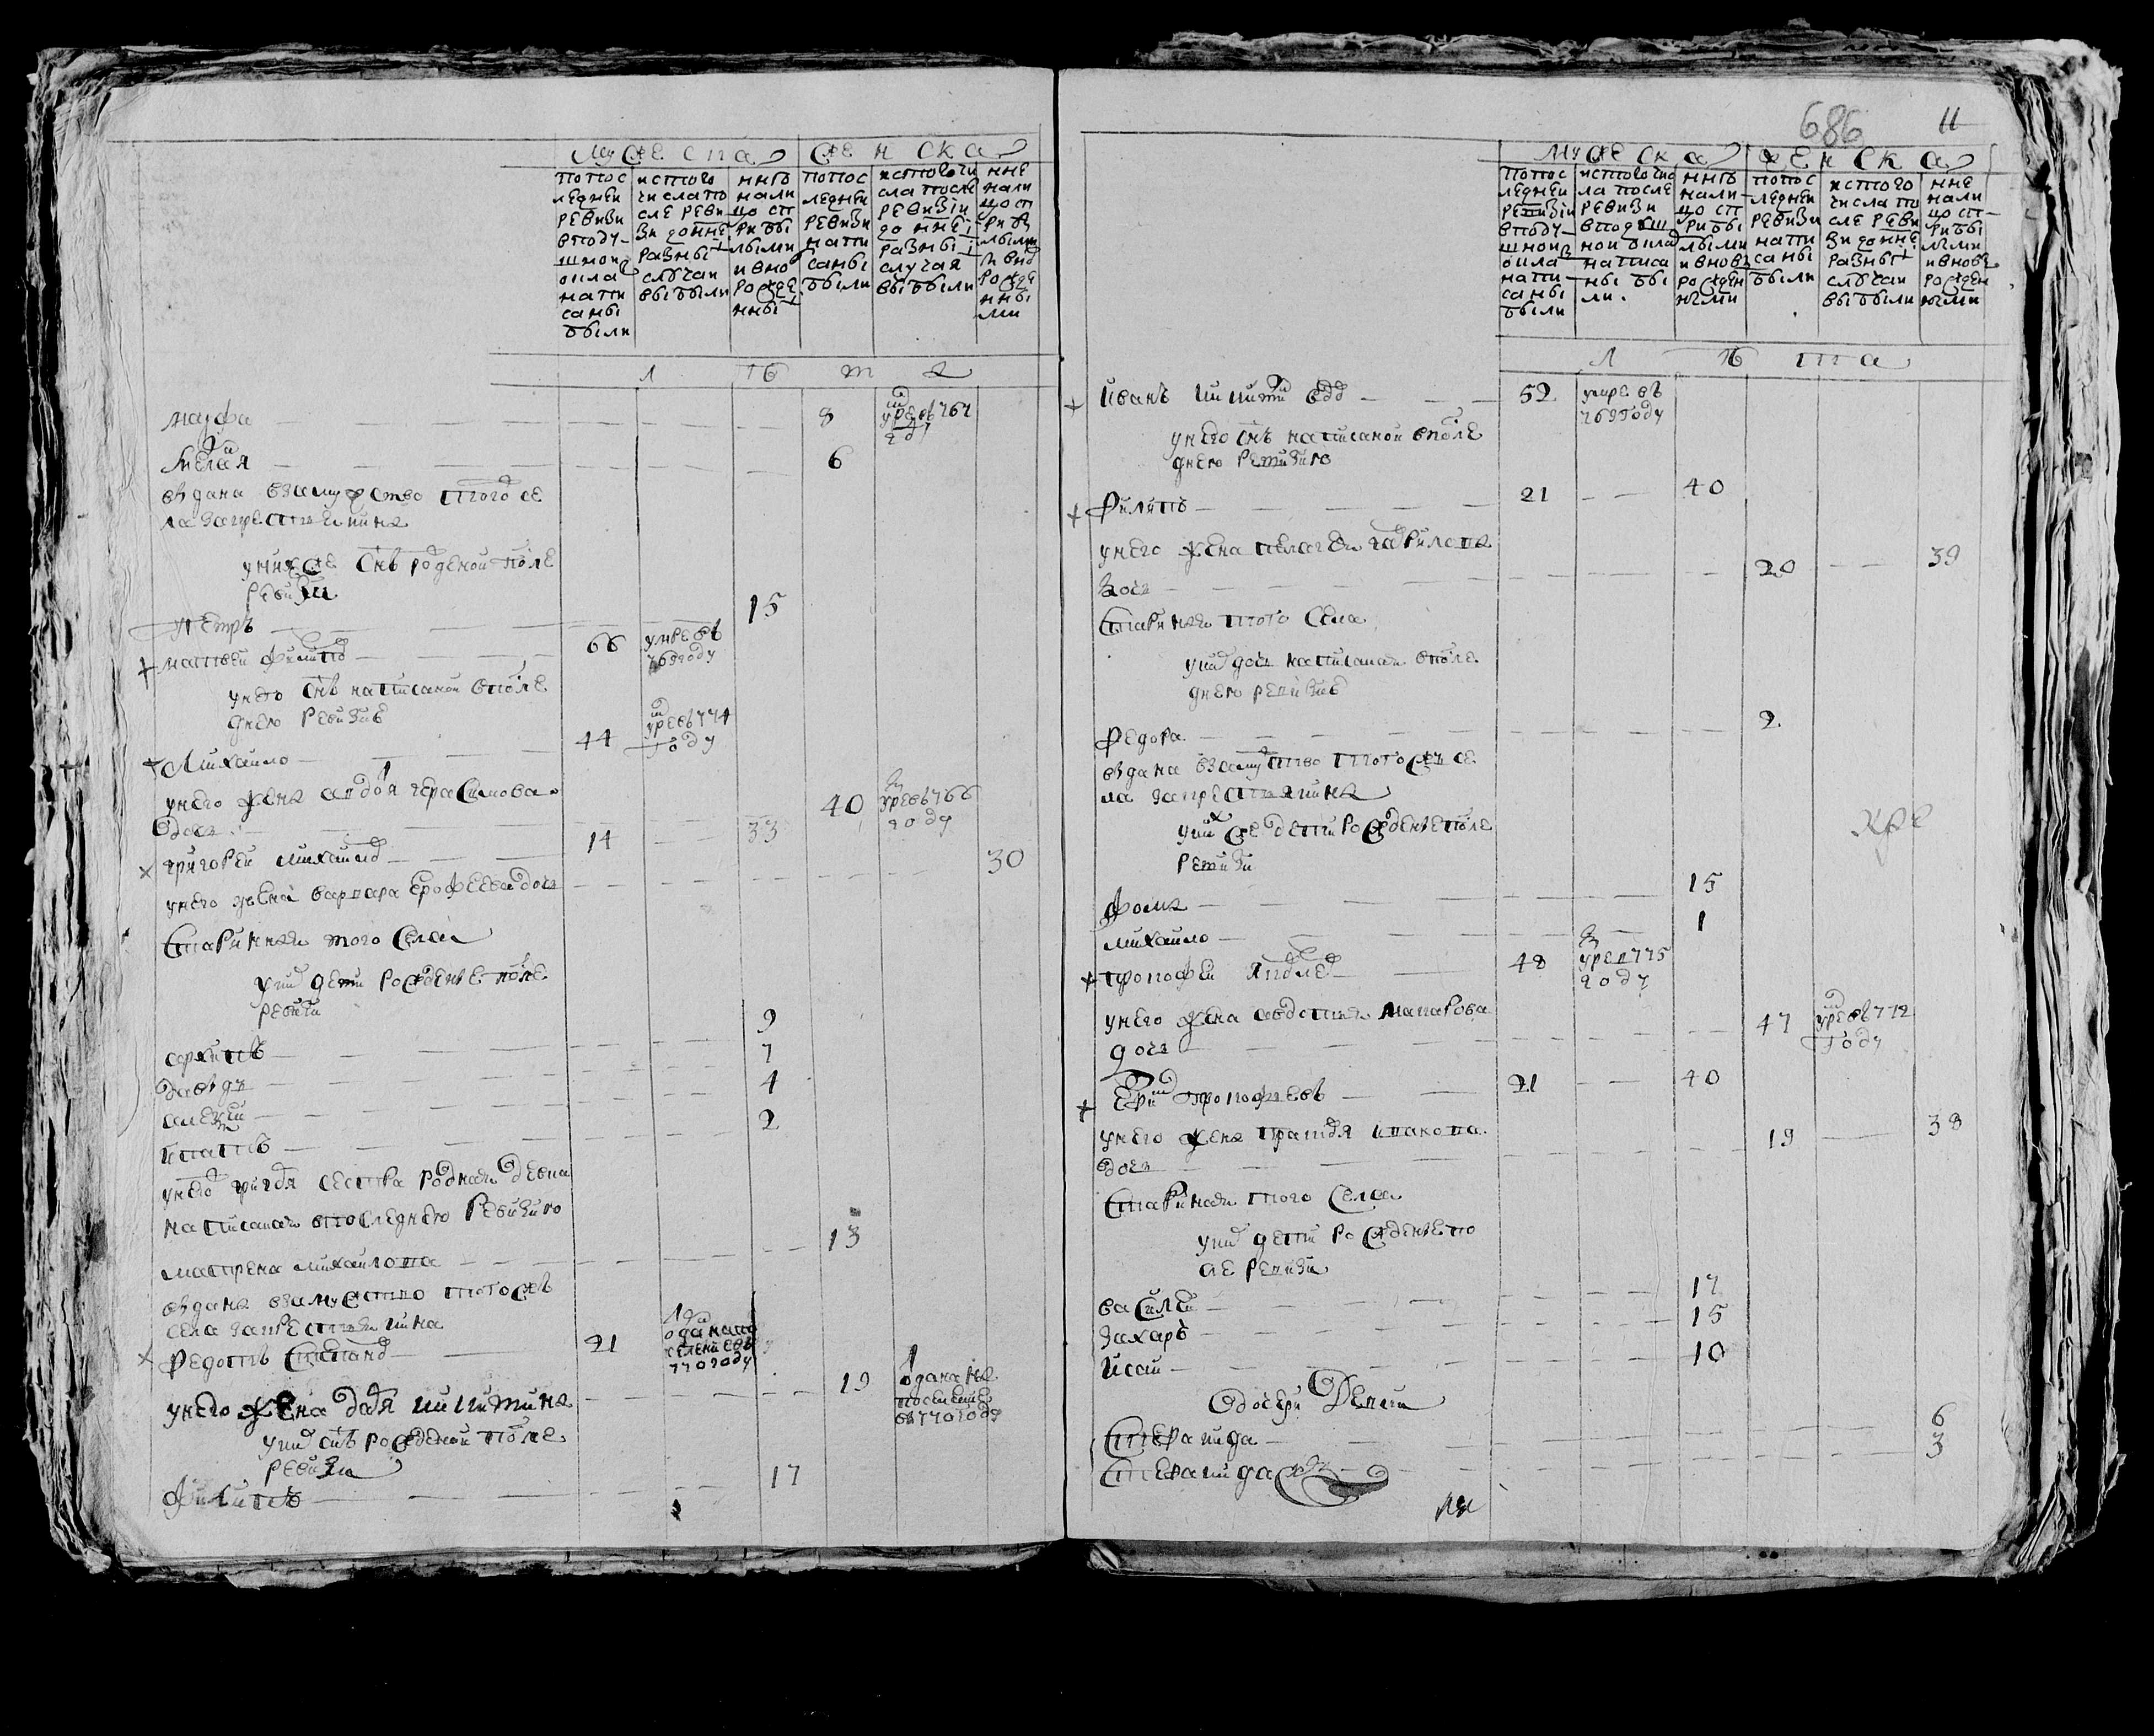 мужеска женска
попос ледней ревизи вподу шной окла написаны были
истого числапо сле реви зи доне разныї случаи выбыли
ннѣ нали цо ст рибы лыми ивно рожде нны
попос ледней ревизи напи саны были
истого чи сла после ревизїи до ннеї разныї случая выбыли
нне нали цо ст рибы лыми ивно рожде нны ми
лѣта
марфа 8 умре в 767 году
6
вѣдана взамужство того се
ла закрестьянина
унихже снъ рожденой после
ревизи
петръ 15
матвей филипо 66 умре въ 769 году
унего снъ написаной впосле
днею ревизию
михайло 44 умре въ 774 году
унего жена авдотя герасимова
дочь 40 умре въ 766 году
григорей михайло 14 33
унего жена варвара ерофеева дочь 30
Стариная того села
уних дети рожденые после
ревизи
архипъ 9
давыдъ 7
алекѣй 4
ипатъ 2
унего григоря сестра родная девка
написаная впоследнею ревизию
матрена михайлова 13
вѣдана взамужство тогожъ
села закрестьянина
федотъ степано 21 770 году
унего жена даря никитина 19 одана на поселение въ 770 году
уних снъ рожденой после
ревизи
филипъ 17
686 11
мужеска женска
попос ледней ревизїи вподу шной окла напи саны были
истого чис ла после ревизи вподуш ной окла написа ны бы ли.
ннѣ нали цо ст рибы лыми ивновь рожден ными
попос ледней ревизи напи саны были
истого числа по сле реви зи донне разны случаи выбыли
нне нали цо ст рибы лыми ивновь рожден ными
лѣта
иванъ никити 52 умре въ 769 году
унего снъ написаной впосле
днею ревизию
филипъ 21 40
унего жена пелагея гаврилова
дочь 20 39
Стариная того села
уних дочь написаная впосле
днею ревизию
федора 2
вѣдана взамужство тогожъ се
ла закрестьянина
уних же дети рожденые после
ревизи
фома 15
михайло 1
прокофей яковле 48 умре в 775 году
унего жена авдотья макарова
дочь 47 умре въ 772 году
прокофьевъ 21 40
унего жена
дочь 19 38
Стариная того села
уних дети рожденые по
сле ревизи
василей 17
захаръ 15
исай 10
дочери девки
степанида 6
степанида 3